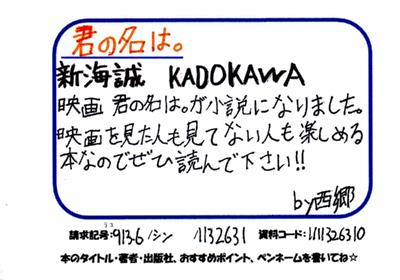 君の名は。
新海誠 KADOKAWA
映画 君の名は。が小説になりました。
映画を見た人も見てない人も楽しめる
本なのでぜひ読んで下さい!!
by西郷
請求記号:913.6/シン 1132631 資料コード:1111326310
本のタイトル・著者・出版社、おすすめポイント、ペンネームを書いてね☆